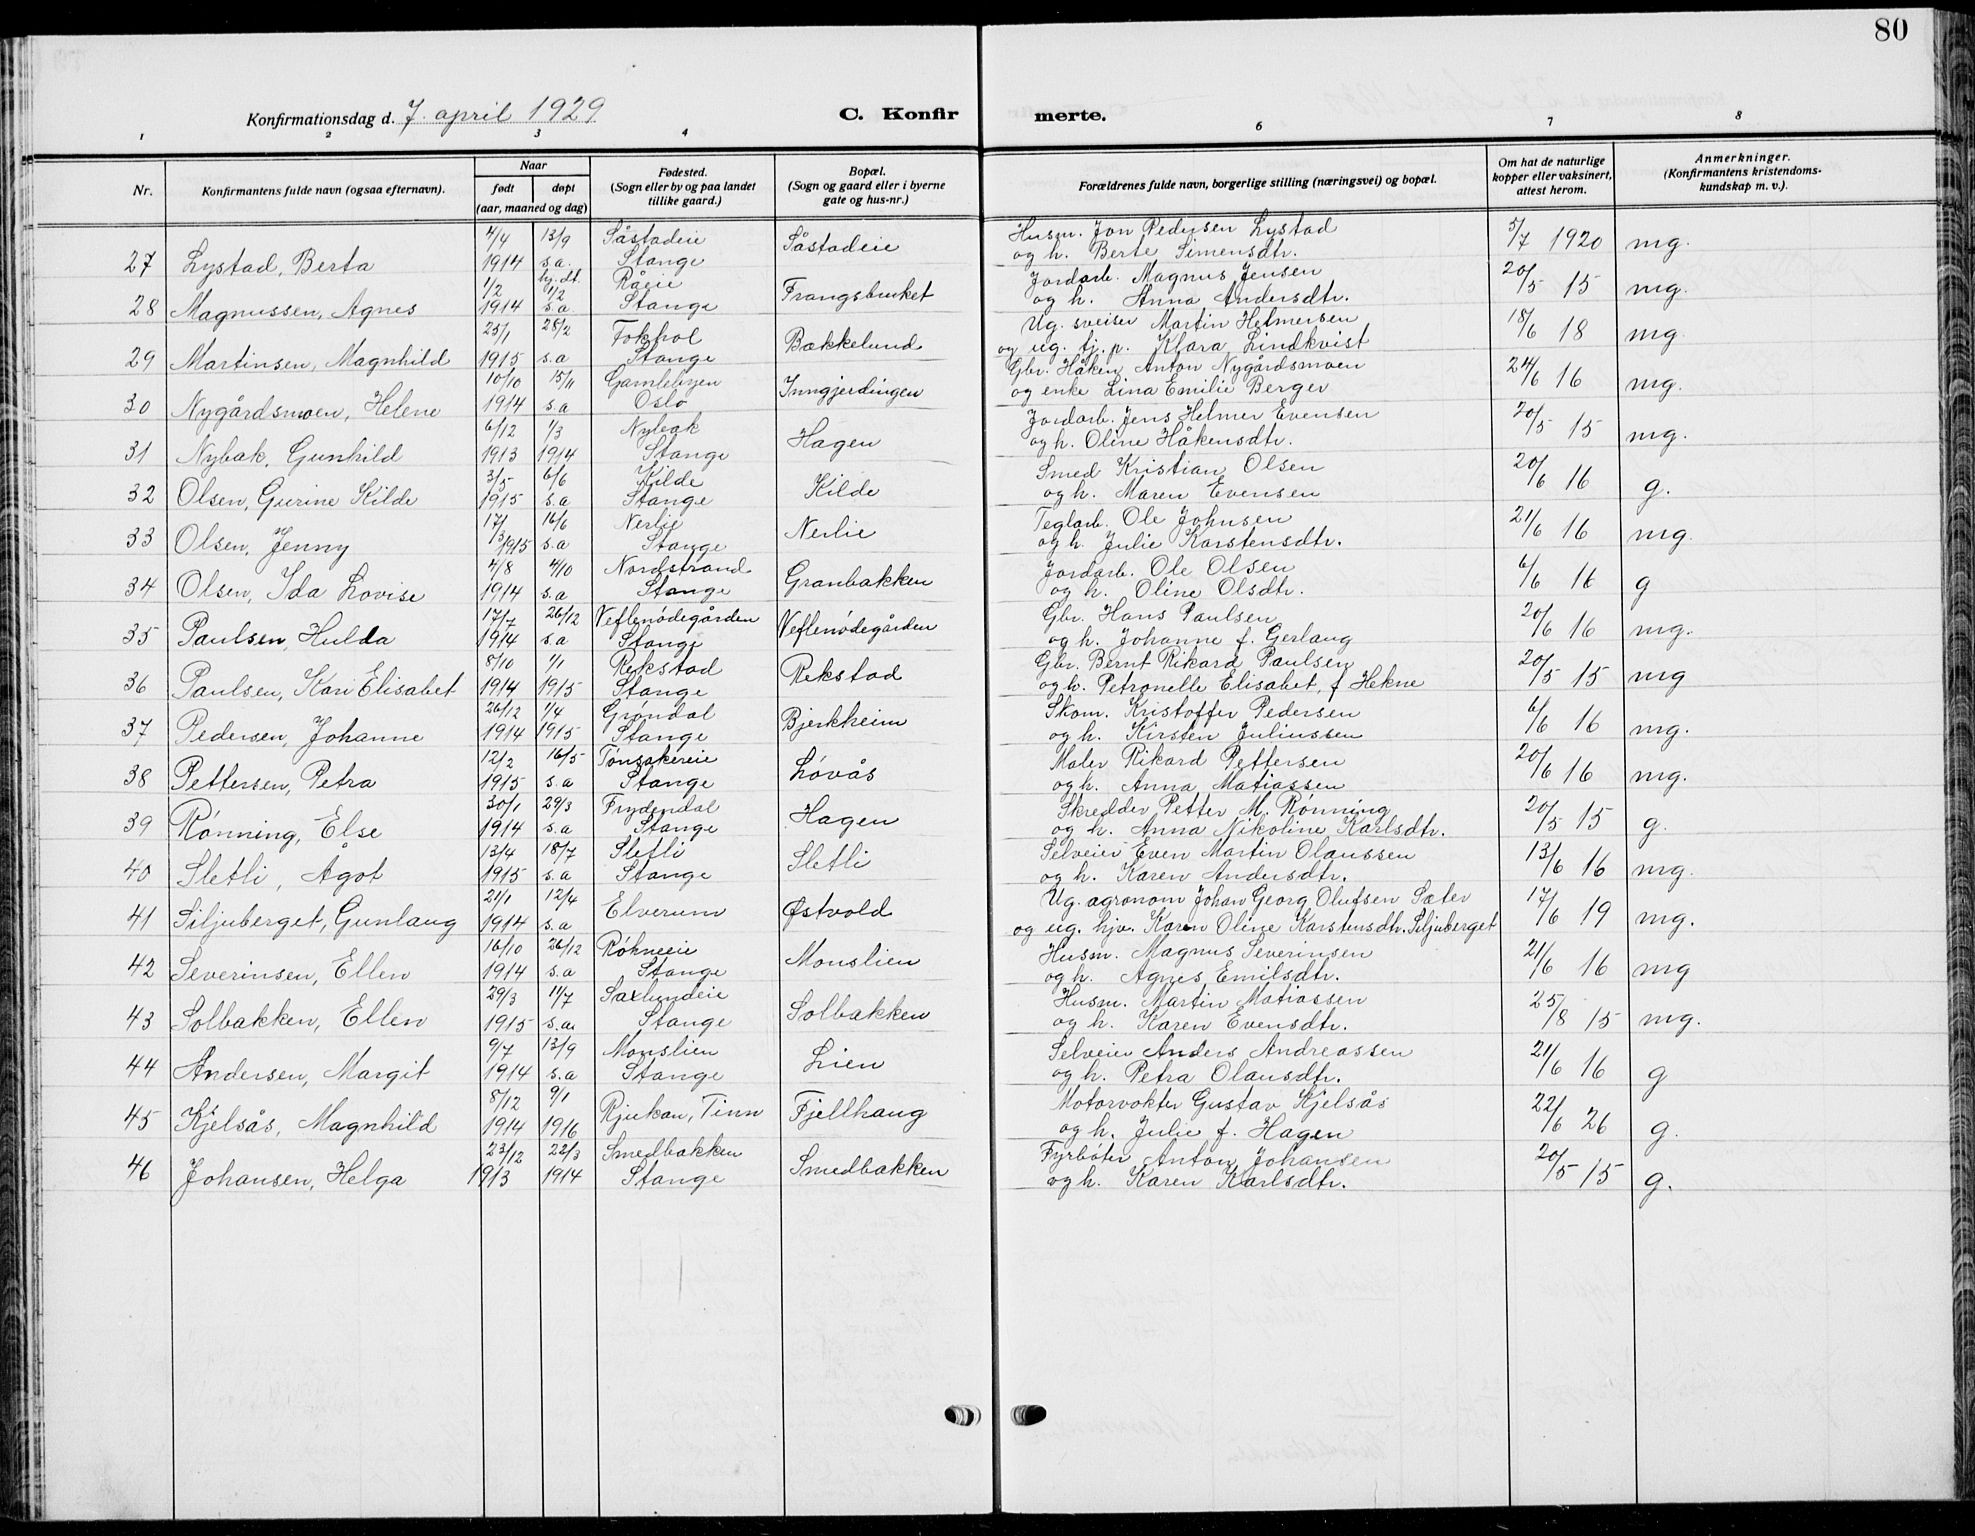 80
Konfirmationsdag d. 7. april 1929 C. Konfirmerte.
1 2 3 4 6 7 8
Nr. Konfirmantens fulde navn (ogsaa efternavn). Naar født døpt (aar, maaned og dag) Fødested. (Sogn eller by og paa landet tillike gaard.) Bopæl. (Sogn og gaard eller i byerne gate og hus-nr.) Forældrenes fulde navn, borgerlige stilling (næringsvei) og bopæl. Om hat de naturlige kopper eller vaksinert, attest herom. Anmerkninger. (Konfirmantens kristendomskundskap m. v.).
4/4 13/9 Såstadeie Såstadeie Husm. Jon Pedersen Lystad 5/7 1920 mg.
27 Lystad, Berta 1914 s.a. Stange og h. Berte Simensdtr.
1/2 hj.dt. 1/2 Råeie Frangsbruket Jordarb. Magnus Jensen 20/5 15 mg.
28 Magnussen, Agnes 1914 s.a. Stange og h. Anna Andersdtr.
25/1 28/2 Fokhol Bækkelund Ug. sveiser Martin Helmersen 18/6 18 mg
29 Martinsen, Magnhild 1915 s.a Stange og ug. tj.p. Klara Lindkvist
10/10 15/11 Gamlebyen Inngjerdingen Gbr. Håken Anton Nygårdsmoen 24/6 16 mg.
30 Nygårdsmoen, Helene 1914 s.a Oslo og enke Lina Emilie Berger
6/12 1/3 Nybak Hagen Jordarb. Jens Helmer Evensen 20/5 15 mg.
31 Nybak, Gunhild 1913 1914 Stange og h. Oline Håkensdtr.
3/5 6/6 Kilde Kilde Smed Kristian Olsen 20/6 16 g.
32 Olsen, Gurine Kilde 1915 s.a Stange og h. Maren Evensen
17/3 16/6 Nerlie Nerlie Teglarb. Ole Johnsen 21/6 16 mg.
33 Olsen, Jenny 1915 s.a Stange og h. Julie Karstensdtr.
4/8 4/10 Nordstrand Granbakken Jordarb. Ole Olsen 6/6 16 g
34 Olsen, Ida Lovise 1914 s.a Stange og h. Oline Olsdtr.
17/7 26/12 Veflenødegården Veflenødegården Gbr. Hans Paulsen 20/6 16 mg.
35 Paulsen, Hulda 1914 s.a Stange og h. Johanne f. Gerlaug
8/10 1/1 Rekstad Rekstad Gbr. Bernt Rikard Paulsen 20/5 15 mg
36 Paulsen, Kari Elisabet 1914 1915 Stange og h. Petronelle Elisabet, f Hekne
26/12 1/4 Grøndal Bjerkheim Skom. Kristoffer Pedersen 6/6 16 mg.
37 Pedersen, Johanne 1914 1915 Stange og h. Kirsten Juliussen
12/2 16/5 Tønsakereie Løvås Maler Rikard Pettersen 20/6 16 mg.
38 Pettersen, Petra 1915 s.a Stange og h. Anna Matiassen
30/1 29/3 Frydendal Hagen Skredder Petter M. Rønning 20/5 15 g.
39 Rønning, Else 1914 s.a Stange og h. Anna Nikoline Karlsdtr.
13/4 18/7 Sletli Sletli Selveier Even Martin Olaussen 13/6 16 mg.
40 Sletli, Ågot 1915 s.a Stange og h. Karen Andersdtr.
21/1 12/4 Elverum Østvold Ug. agronom Johan Georg Olufsen Sæter 17/6 19 mg.
41 Siljuberget, Gunlaug 1914 s.a. og ug. hjv. Karen Oline Karstensdtr. Siljuberget
16/10 26/12 Røkneeie Monslien Husm. Magnus Severinsen 21/6 16 mg
42 Severinsen, Ellen 1914 s.a Stange og h. Agnes Emilsdtr.
29/3 11/7 Saxlundeie Solbakken Husm. Martin Matiassen 25/8 15 mg.
43 Solbakken, Ellen 1915 s.a. Stange og h. Karen Evensdtr.
9/7 13/9 Monslien Lien Selveier Anders Andreassen 21/6 16 g
44 Andersen, Margit 1914 s.a Stange og h. Petra Olausdtr.
8/12 9/1 Rjukan, Tinn Fjellhaug Motorvokter Gustav Kjelsås 22/6 26 g.
45 Kjelsås, Magnhild 1914 1916 og h. Julie f. Hagen
23/12 22/3 Smedbakken Smedbakken Fyrbøter Anton Johansen 20/5 15 g.
46 Johansen, Helga 1913 1914 Stange og h. Karen Karlsdtr.